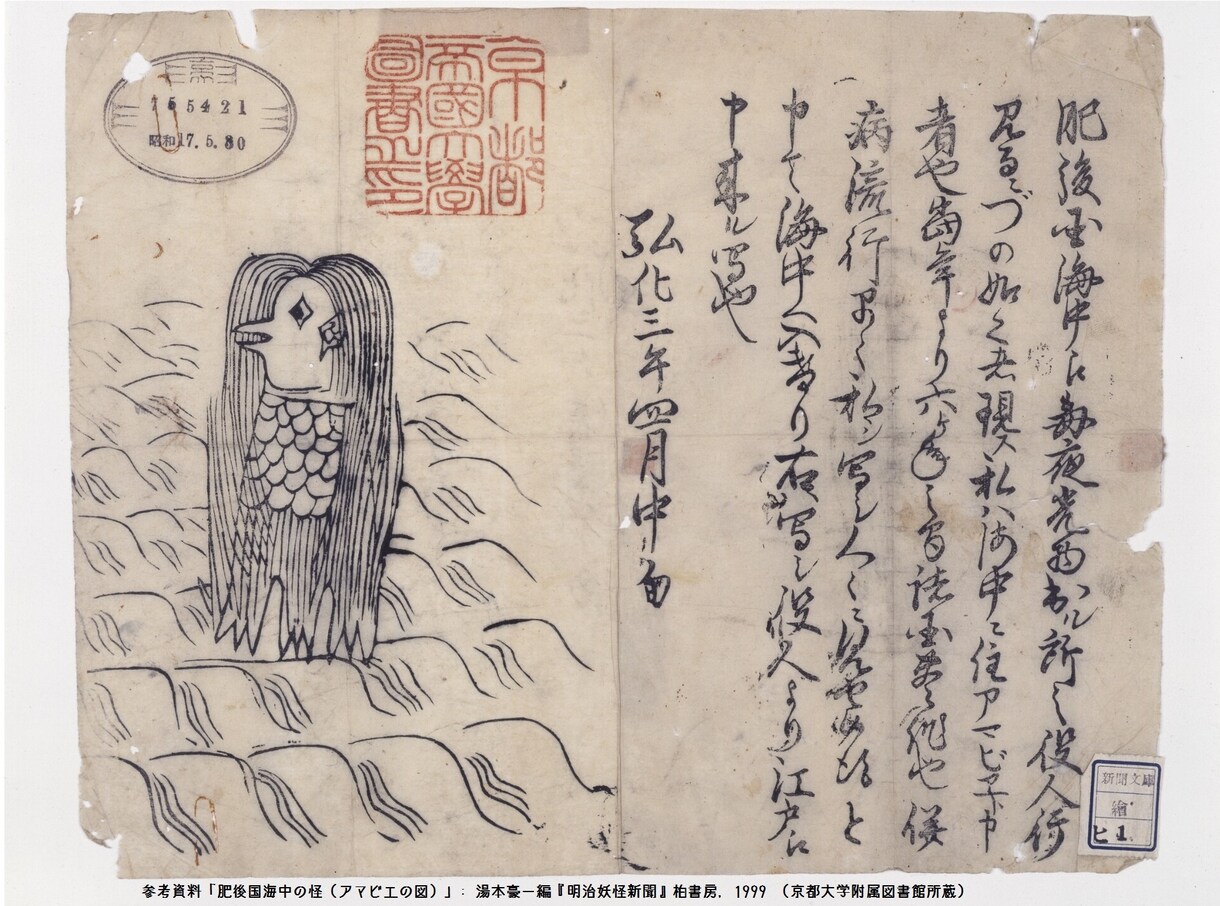 京都
帝國大學
圖書之印
昭和17.5.30
肥後国海中え毎夜光物出ル所之役人行
見るニづの如く者現ス私ハ海中ニ住アマビヱト申
者也當年より六ヶ年之間諸国豊作也併
病流行早々私シ写シ人々ニ見せ候得と
申て海中へ入けり右写シ役人より江戸え
申来ル写也
弘化三年四月中旬
新聞文庫
繪
ヒ1
参考資料「肥後国海中の怪（アマビエの図）」：湯本豪一編『明治妖怪新聞』柏書房，1999　（京都大学附属図書館所蔵）